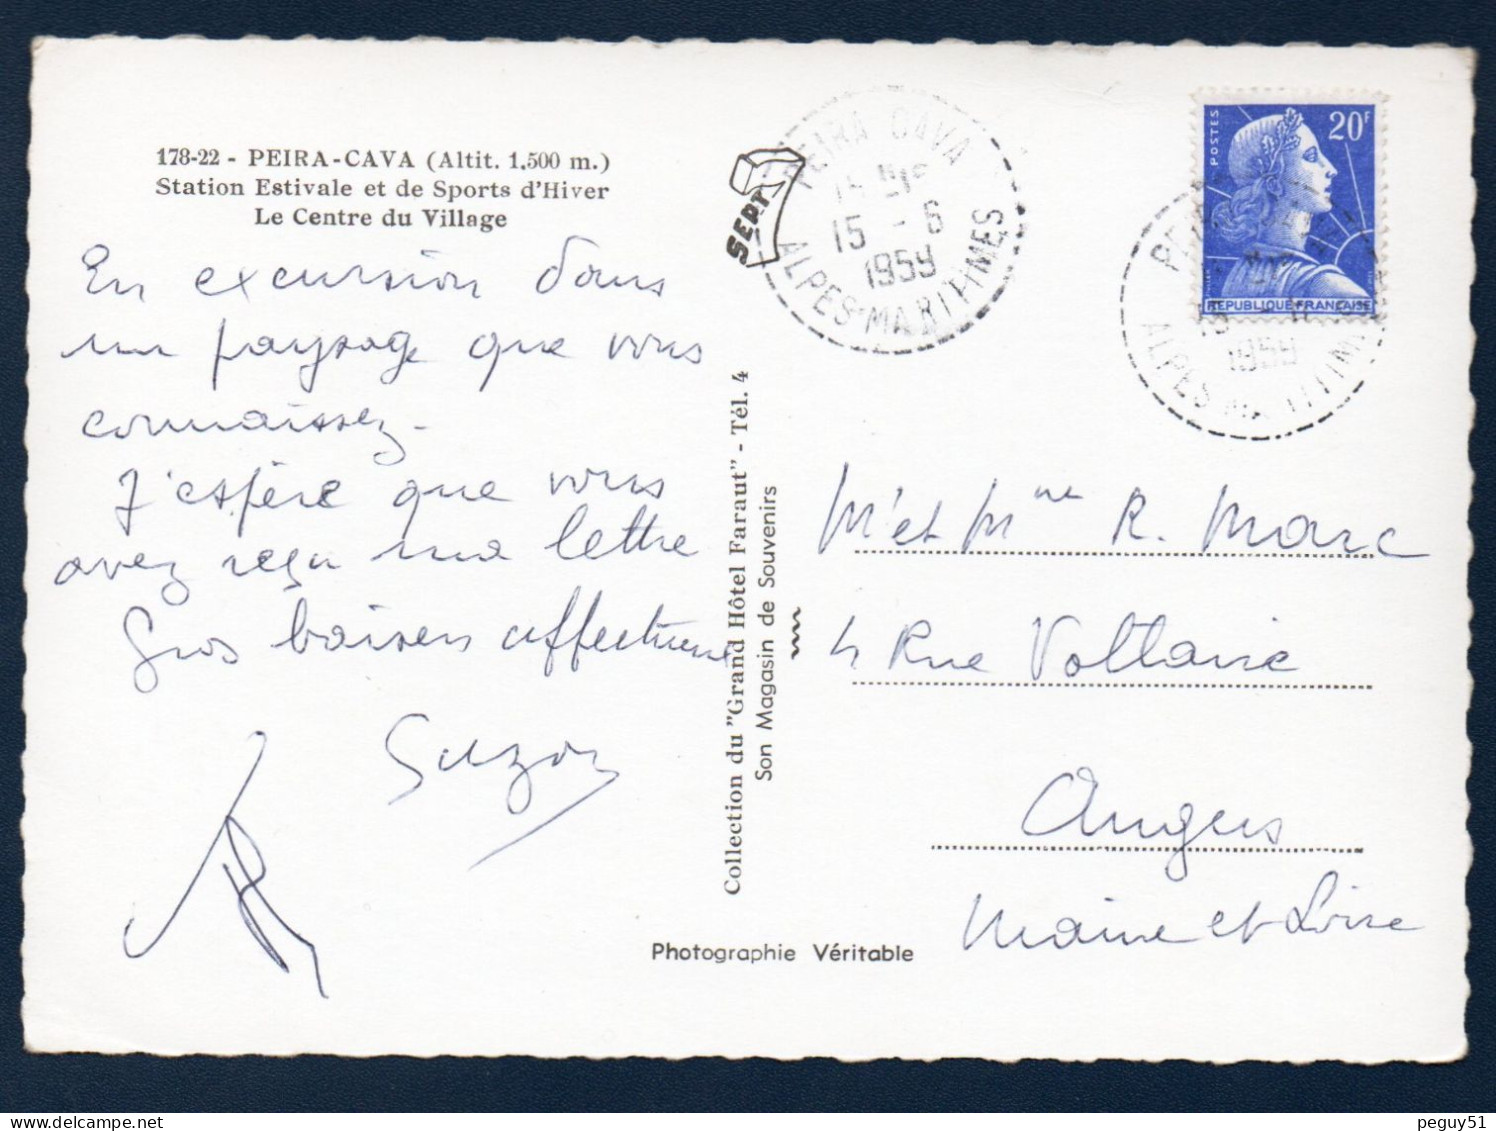 178-22 - PEIRA-CAVA (Altit. 1.500 m.)
Station Estivale et de Sports d'Hiver
Le Centre du Village
En excursion dans
un paysage que vous
connaissez.
J'espère que vous
avez reçu ma lettre
Gros baisers affectueux
Suzon
Collection du "Grand Hôtel Faraut" - Tél. 4
Son Magasin de Souvenirs
Photographie Véritable
SEPT
PEIRA CAVA
15 - 6
1959
ALPES-MARITIMES
POSTES
20F
REPUBLIQUE FRANÇAISE
1959
ALPES MARITIM
Mr et Mme R. Marc
4 Rue Voltaire
Angers
Maine et Loire
peguy51